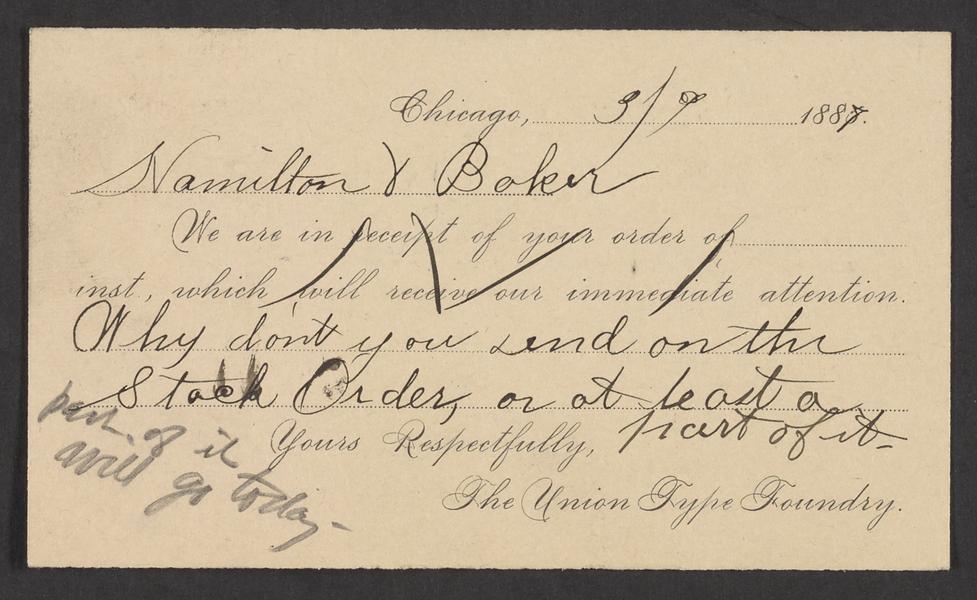 Chicago, 3/9 1888.
Hamilton & Baker
We are in receipt of your order of
inst., which will receive our immediate attention.
Why don't you send on the
Stock Order, or at least a
part of it-
Yours Respectfully,
The Union Type Foundry.
part of it
will go today-